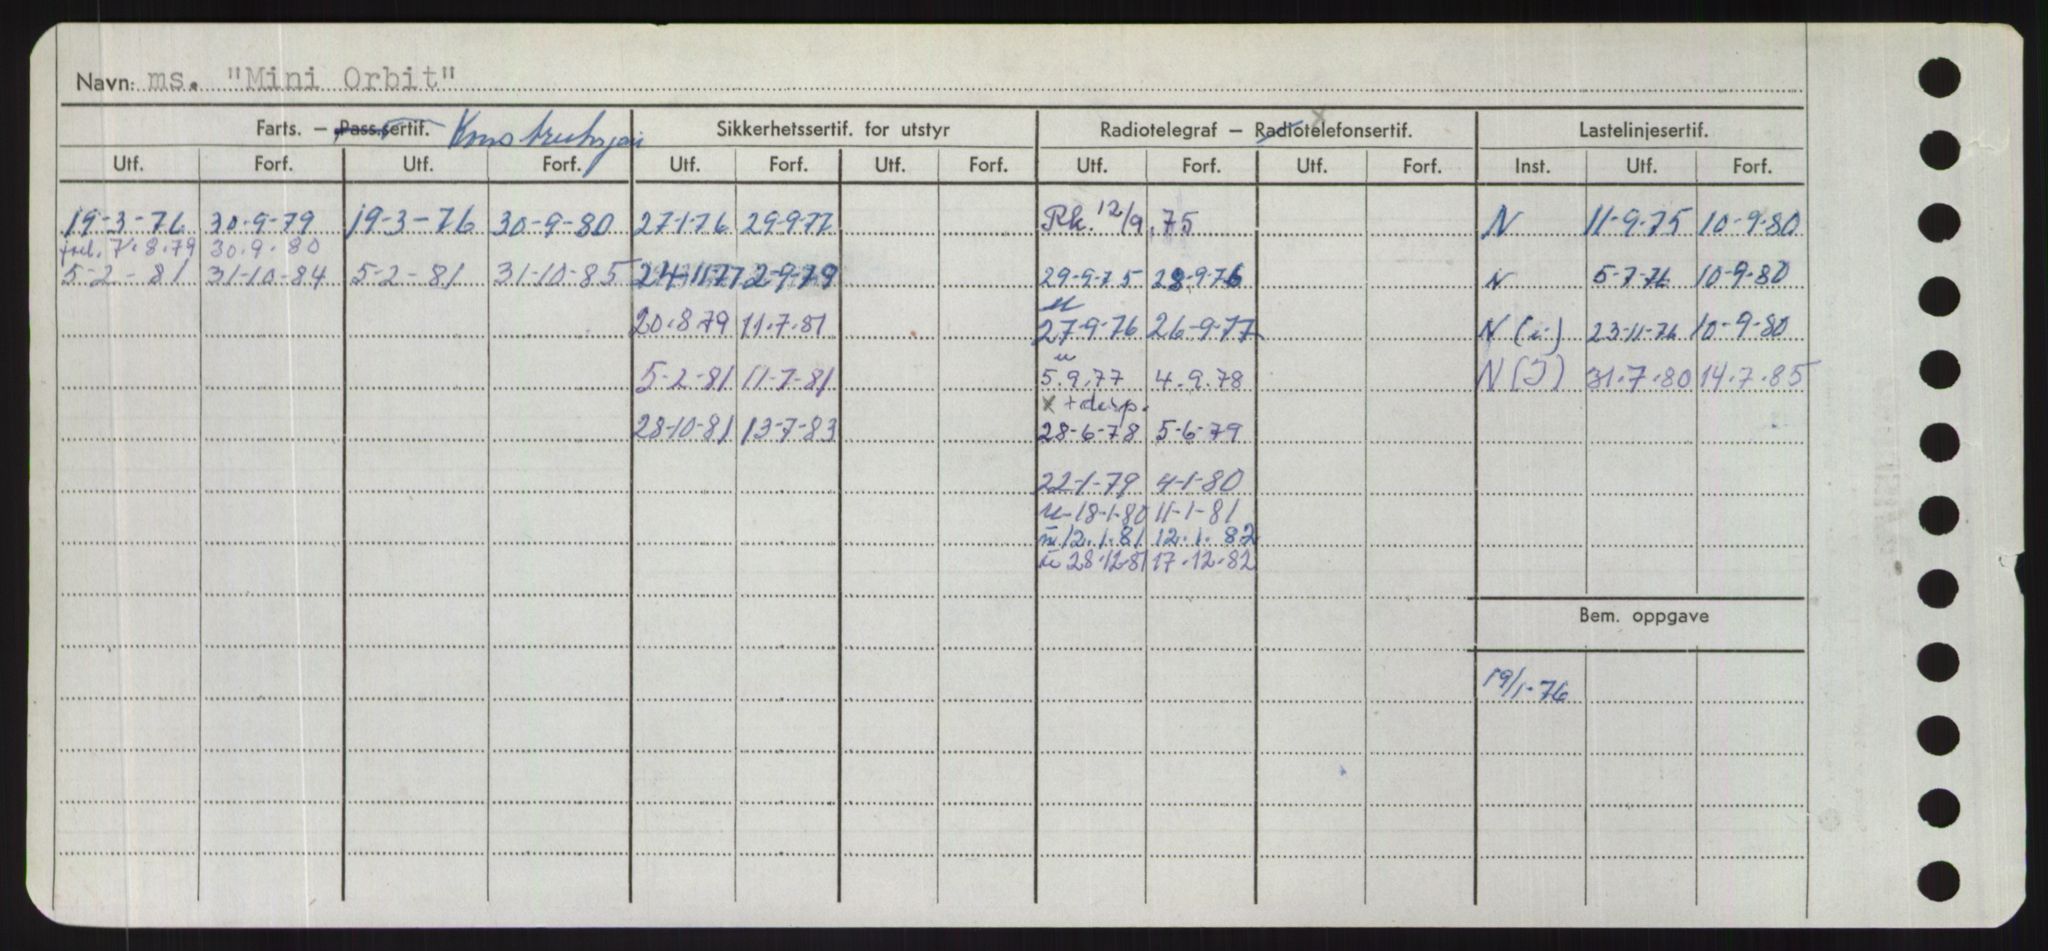 Navn: ms. "Mini Orbit"
Farts. – Pass.sertif. Konstruksjon Sikkerhetssertif. for utstyr Radiotelegraf – Radiotelefonsertif. x Lastelinjesertif.
Utf. Forf. Utf. Forf. Utf. Forf. Utf. Forf. Utf. Forf. Utf. Forf. Inst. Utf. Forf.
19-3-76 30-9-79 19-3-76 30-9-80 27-1-76 29-9-77 Rk. 12/9.75 N 11-9-75 10-9-80
7.8.79 30.9.80
5-2-81 31-10-84 5-2-81 31-10-85 24-11-77 2-9-79 29-9-75 28-9-76 N 5-7-76 10-9-80
u
20.8.79 11.7.81 27-9-76 26-9-77 N (i) 23-11-76 10-9-80
u
5-2-81 11-7-81 5.9.77 4.9.78 N (I) 31.7.80 14.7.85
x + disp.
28-10-81 13-7-83 28-6-78 5-6-79
22-1-79 4-1-80
u 18-1-80 11-1-81
u 12.1.81 12.1.82
u 28.12.81 17.12.82
Bem. oppgave
19/1-76